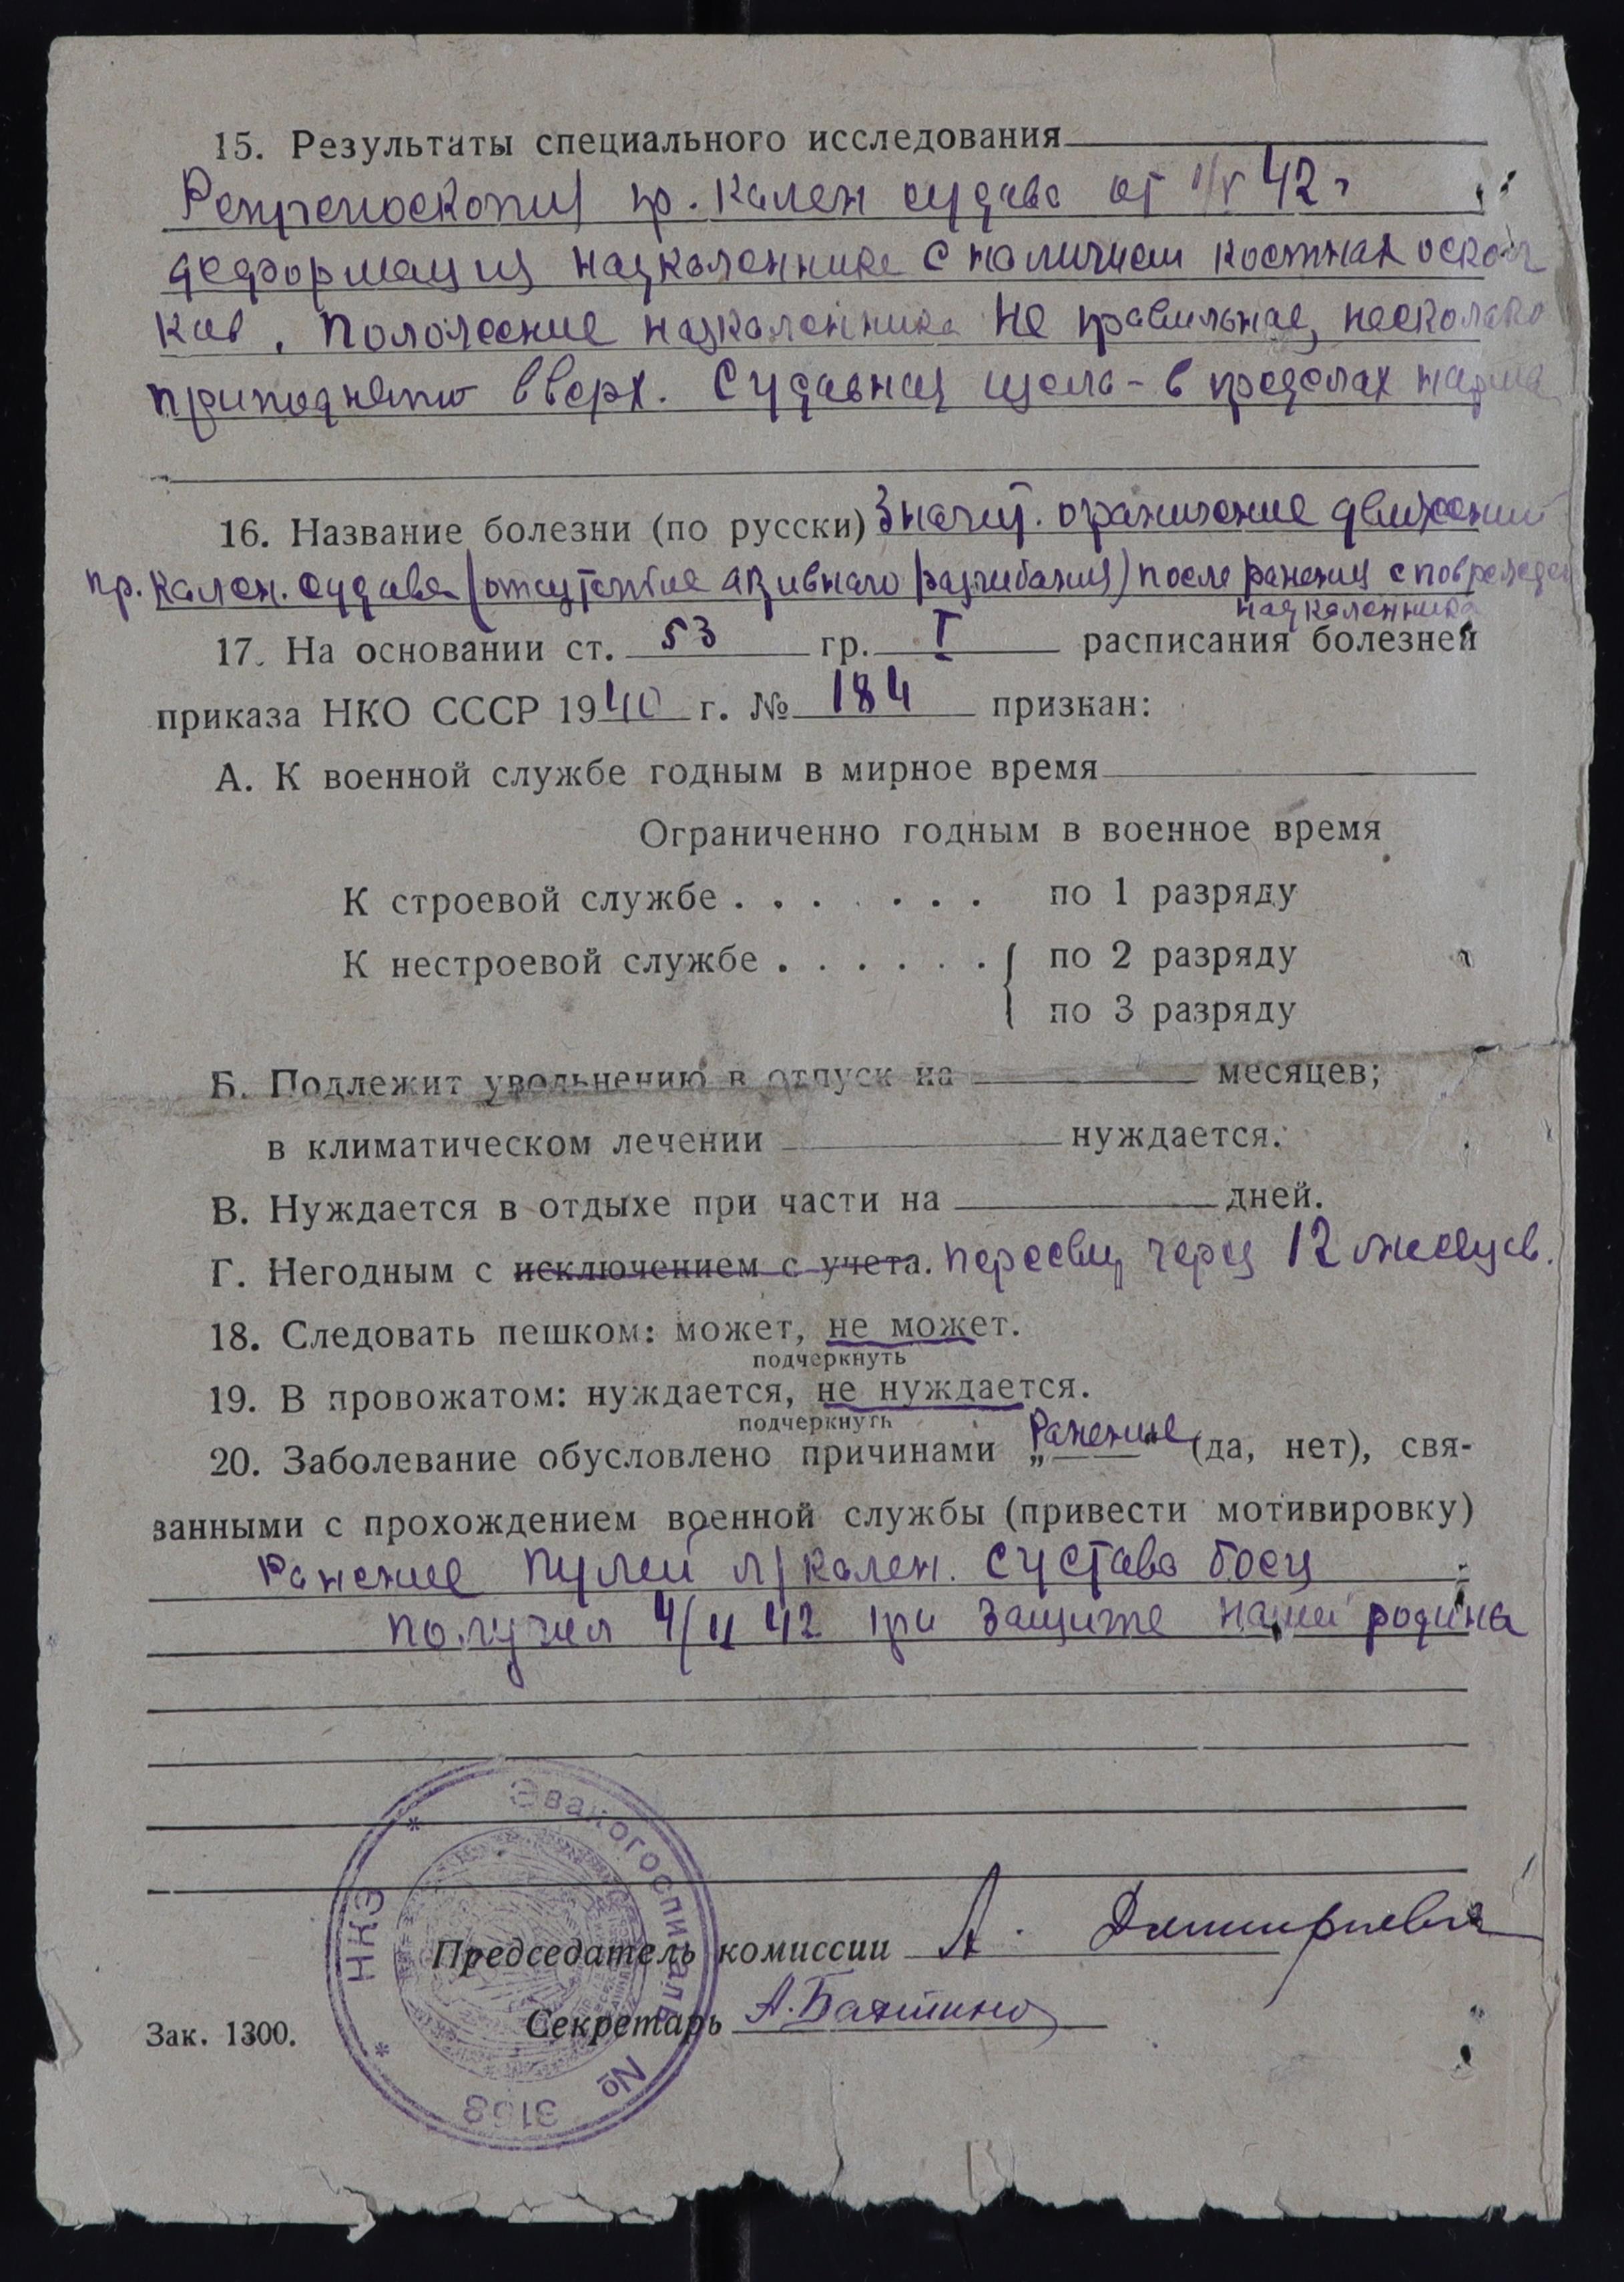 15. Результаты специального исследования
Рентгеноскопия пр. колен сустава от 11/V 42 г
деформация надколенника с наличием костнах оскол
ков. Положение надколенника не правильное, несколько
приподнято вверх. Суставная щель - в пределах
16. Название болезни (по русски) Значит. ограничение движений
пр. колен. сустава (отсутствие активного разгибания) после ранения с поврежден
надколенника
17. На основании ст. 53 гр. I расписания болезней
приказа НКО СССР 1940 г. № 184 призкан:
А. К военной службе годным в мирное время
Ограниченно годным в военное время
К строевой службе . . . . . . . по 1 разряду
К нестроевой службе . . . . . . . { по 2 разряду
по 3 разряду
Б. Подлежит увольнению в отпуск на ______ месяцев;
в климатическом лечении ______ нуждается.
В. Нуждается в отдыхе при части на ______ дней.
Г. Негодным с исключением с учета. пересвид через 12 месяцев.
18. Следовать пешком: может, не может.
подчеркнуть
19. В провожатом: нуждается, не нуждается.
подчеркнуть
20. Заболевание обусловлено причинами „Ранение“ (да, нет), свя-
занными с прохождением военной службы (привести мотивировку)
Ранение пулей колен. сустава боец
получил 4/II 42 при защите нашей родина
Председатель комиссии А.
Секретарь А.
Зак. 1300.
НКЗ * Эвакогоспиталь № 3158 *